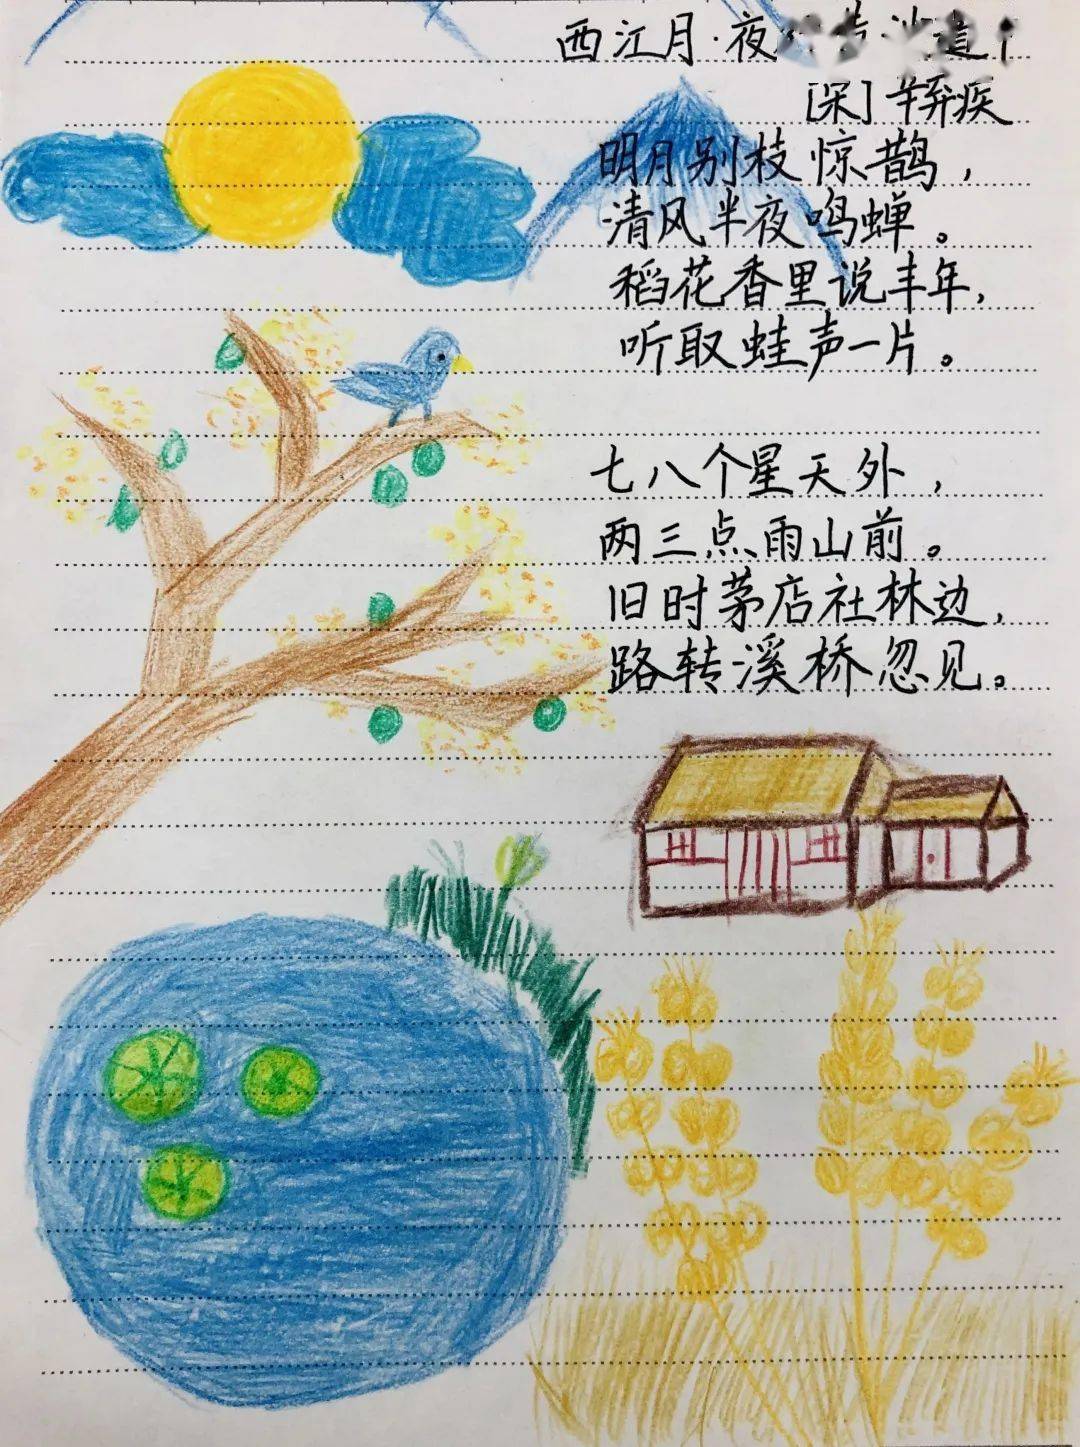 西江月·夜
[宋]辛弃疾
明月别枝惊鹊，
清风半夜鸣蝉。
稻花香里说丰年，
听取蛙声一片。
七八个星天外，
两三点雨山前。
旧时茅店社林边，
路转溪桥忽见。